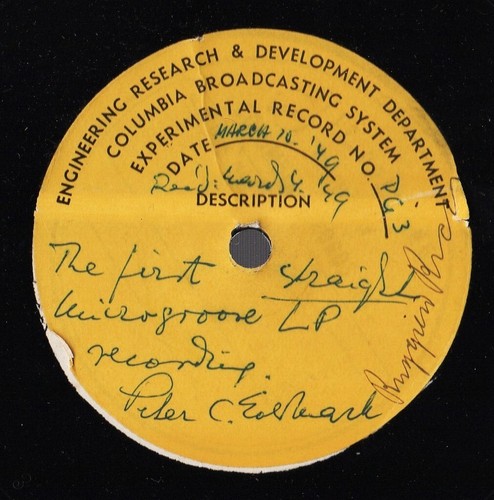 ENGINEERING RESEARCH & DEVELOPMENT DEPARTMENT
COLUMBIA BROADCASTING SYSTEM
EXPERIMENTAL RECORD NO. PG 3
DATE MARCH 10. '49
Rec'd: March 4. '49
DESCRIPTION
The first straight
Microgroove LP
recording.
Peter C. Goldmark
Ruggiero Ricci